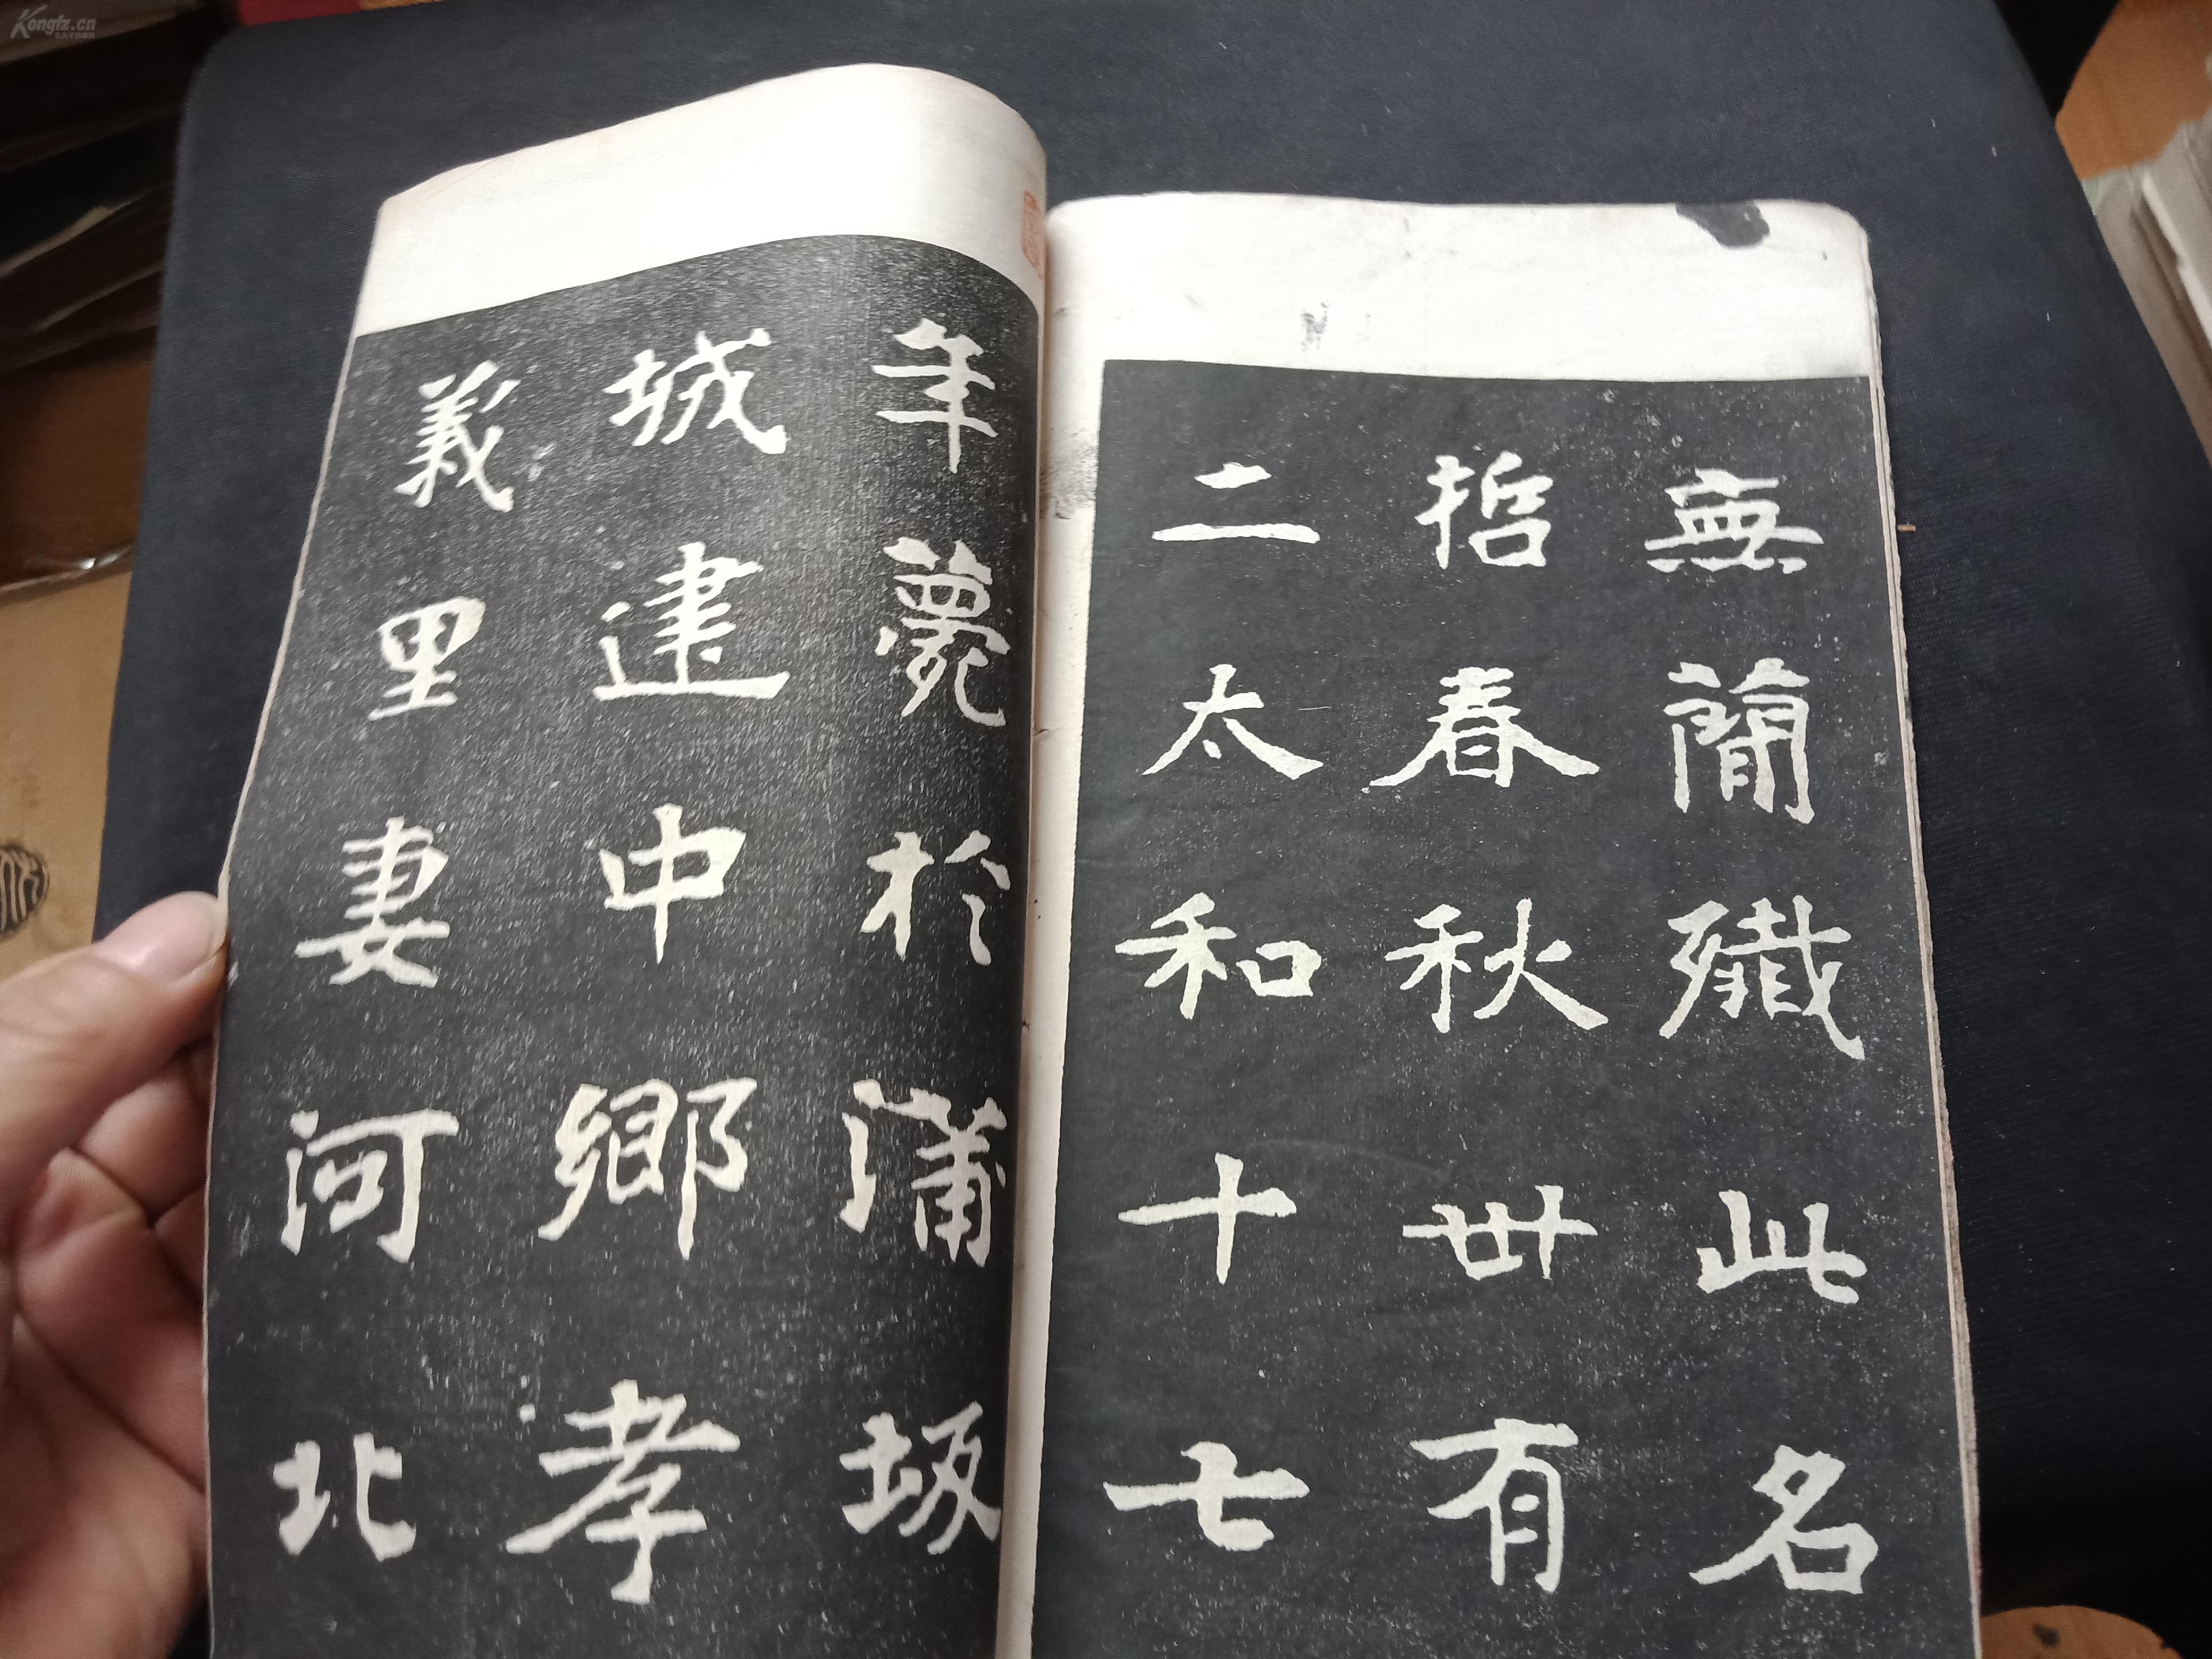 無簡殲此名
哲春秋卌有
二太和十七
年薨於蒲坂
城建中鄉孝
義里妻河北
Kongfz.cn